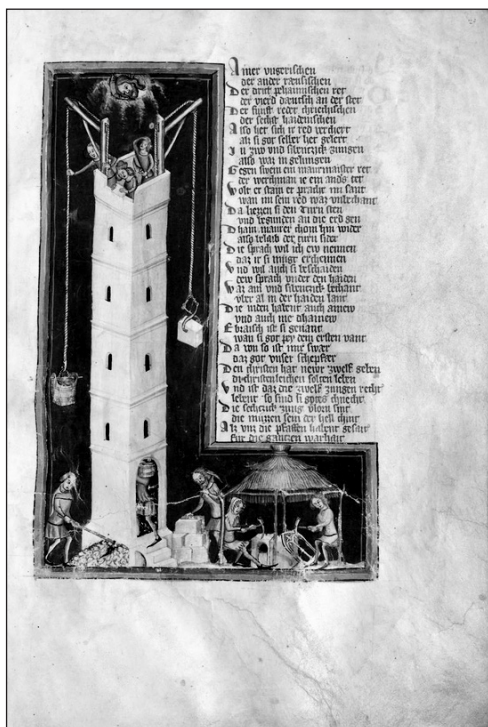 Ainer vngrischen
der ander raeusischen
Der drit pehaimischen ret
der vierd daeutsch an der stet
Der funft redet chriechischen
der sechst haidenischen
Also het sich ir red verchert
als si got selber het gelert
In zwo vnd sibentzick zungen
also waz in gelungen
Gegen swem ein maurmaister ret
der werchman ie ein anders tet
Wolt er stain er pracht im sant
wan im sein red waz vnbechant
Da liezzen si den turn sten
vnd begunden an die erd gen
Dhain maurer chom hin wider
also belaib der turn sider
Die sprach wil ich ew nennen
daz ir si mugt erchennen
Vnd wil auch si beschaiden
dew sprach vnder den haiden
Waz ain vnd sibentzick bechant
vber al in der haiden lant
Die iuden habent auch ainew
vnd auch nie dhainew
Ebraisch ist si genant
wan si got pey dem ersten vant
Da von so ist mir swar
daz got vnser schepfer
Den christen hat newr zwelf geben
di christenleichen solten leben
Vnd ist daz die zwelf zungen recht
lebent so sind si gotes chnecht
Die sechtzick zung vlorn sint
die muzzen sein der hell chint
Als vns die pfaffen habent gesait
fur die gantzen warhait